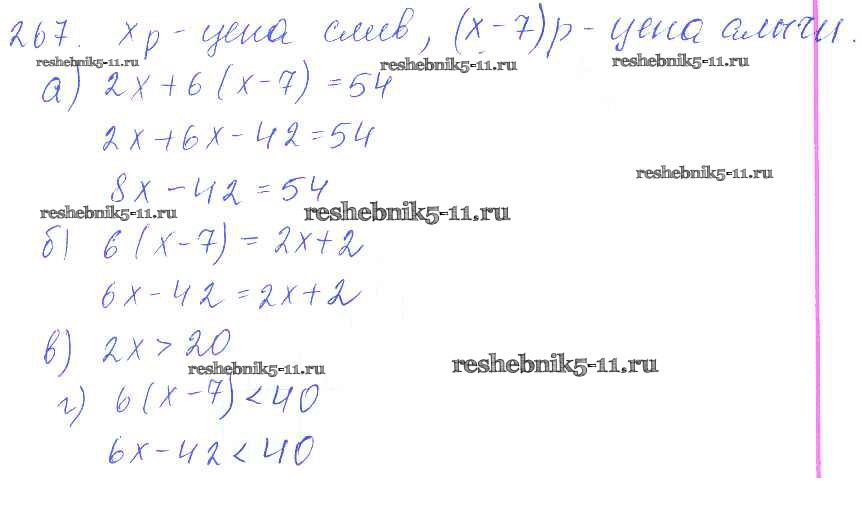 267. х р - цена слив, (х-7) р - цена алычи.
reshebnik5-11.ru reshebnik5-11.ru reshebnik5-11.ru
а) 2х+6(х-7)=54
2х+6х-42=54
reshebnik5-11.ru
8х-42=54
reshebnik5-11.ru reshebnik5-11.ru
б) 6(х-7)=2х+2
6х-42=2х+2
в) 2х>20
reshebnik5-11.ru reshebnik5-11.ru
г) 6(х-7)<40
6х-42<40